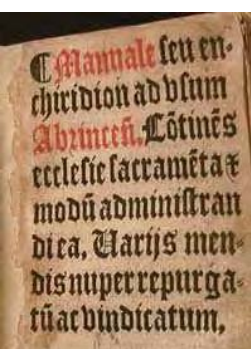 ¶ Manuale seu en-
chiridion ad vsum
Abrinceñ. Cõtinẽs
ecclesie sacramẽta &
modũ administran
di ea, Uarijs men-
dis nuper repurga-
tũ ac vindicatum,